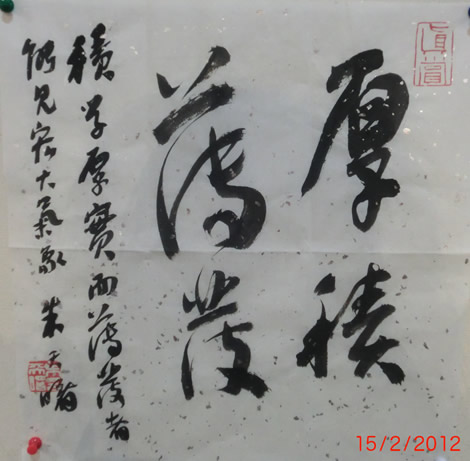 厚積
薄發
積學厚實而薄發者
能見宏大氣象 朱天曙
15/2/2012